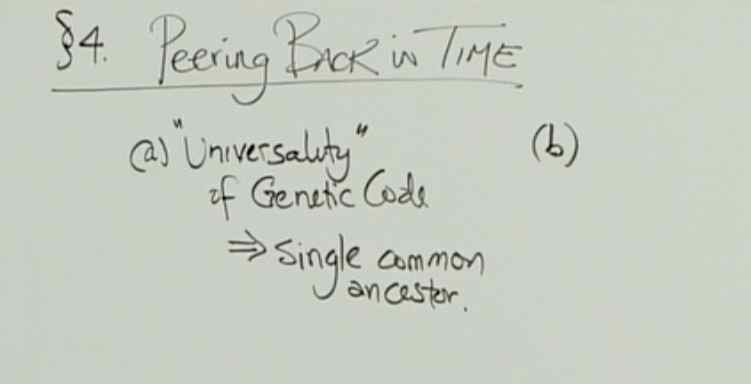 §4. Peering Back in Time
(a) "Universality" (b)
of Genetic Code
⇒ Single common
ancestor.